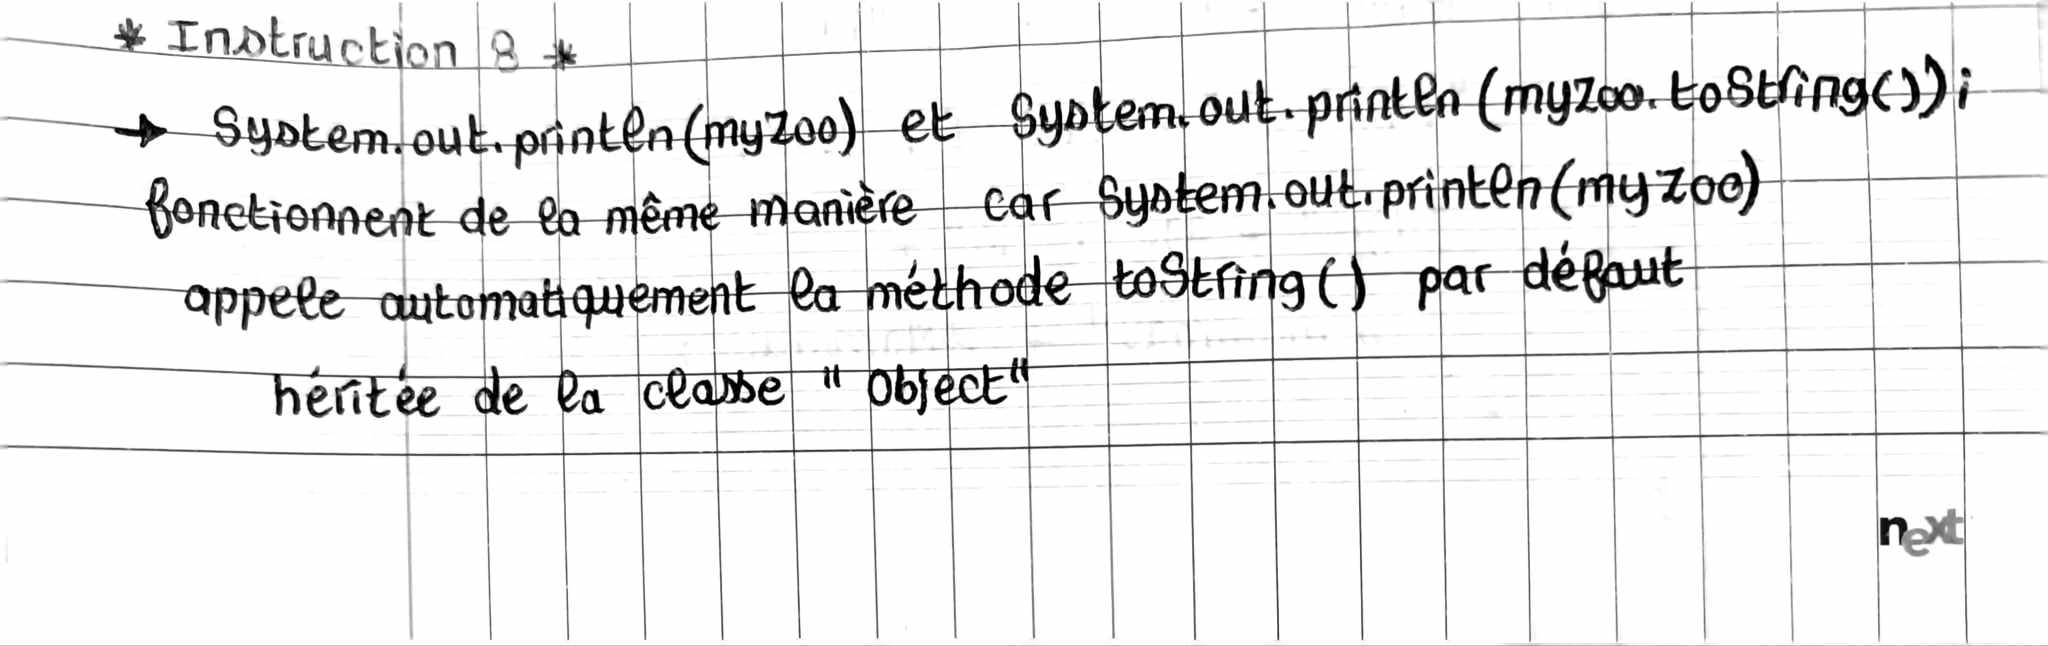 * Instruction 8 *
→ System.out.println(myZoo) et System.out.println(myZoo.toString());
fonctionnent de la même manière car System.out.println(myZoo)
appele automatiquement la méthode toString() par défaut
héritée de la classe "Object"
next